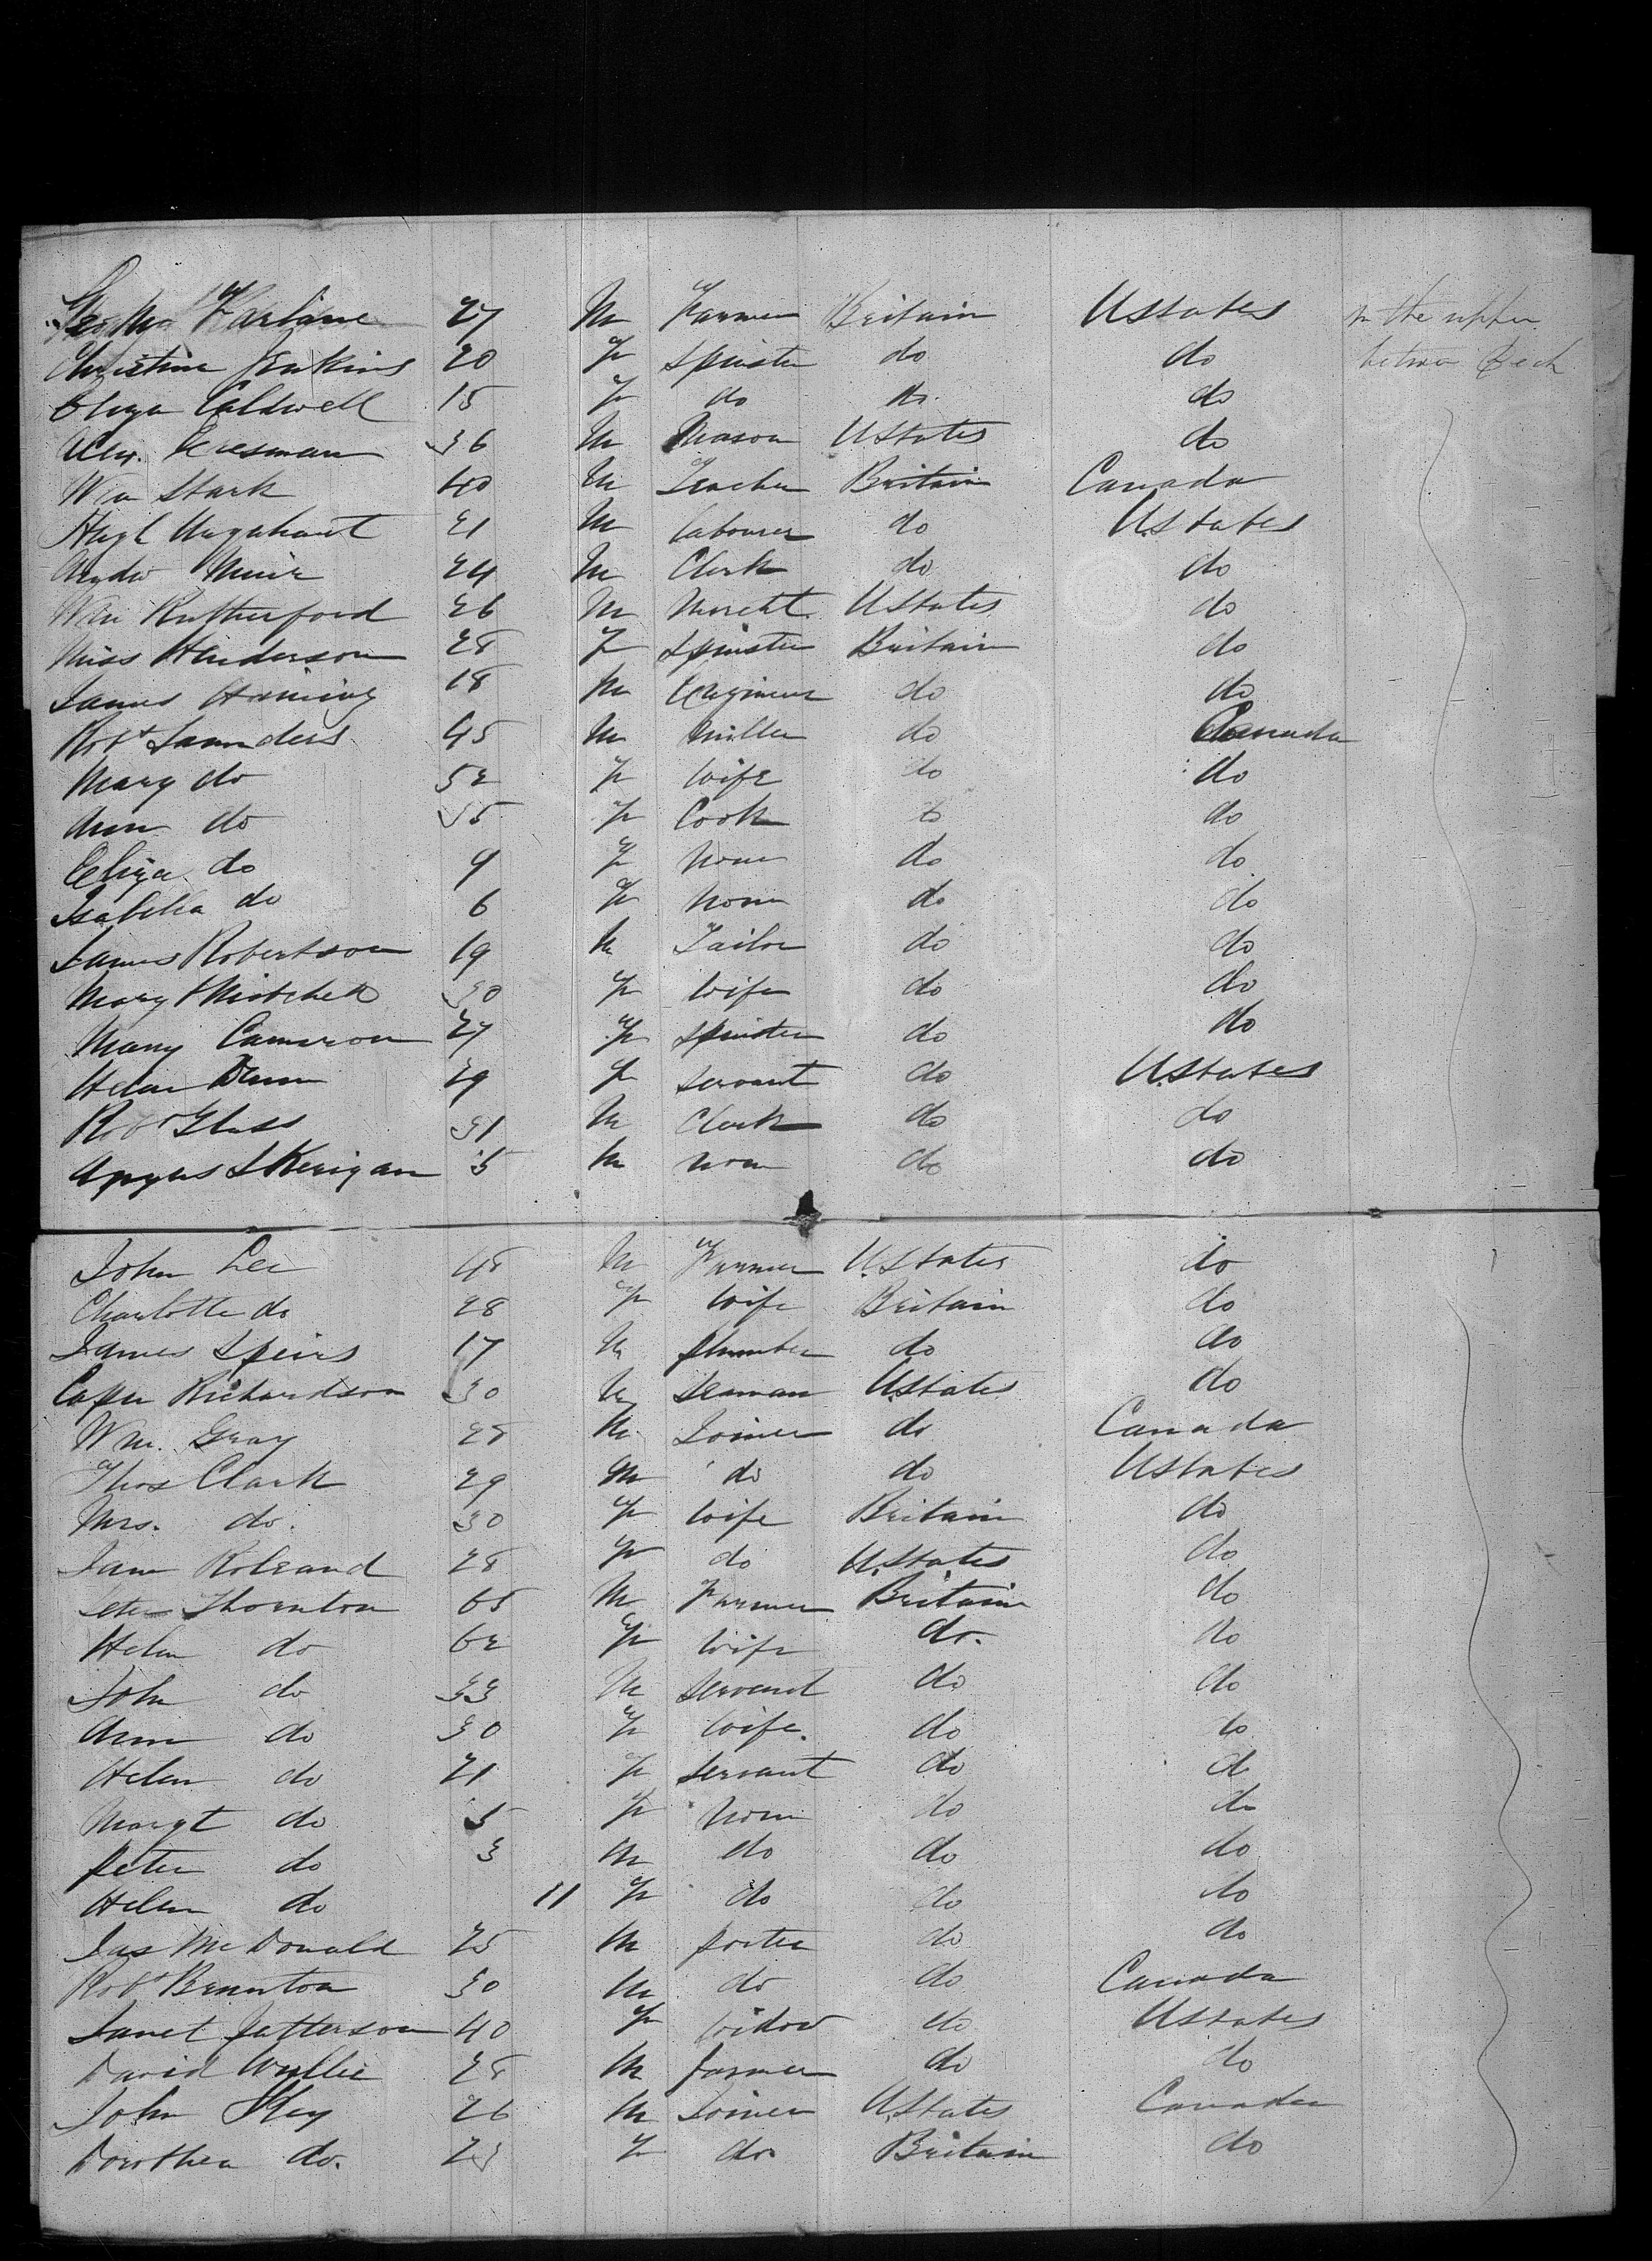 Geo Mc Farlane 27 M Farmer Britain UStates In the upper
Christina Jenkins 20 F Spinster do do between Deck
Eliza Caldwell 15 F do do do
Alex. 36 M Mason UStates do
Wm Stark 40 M Teacher Britain Canada
Hugh Urquhart 21 M labourer do UStates
Andw Muir 24 M Clerk do do
Wm Rutherford 26 M Mercht UStates do
Miss Henderson 28 F Spinster Britain do
James 18 M Engineer do do
Robt Saunders 45 M Miller do Canada
Mary do 52 F Wife do do
Ann do 35 F Cook do do
Eliza do 9 F None do do
Isabella do 6 F None do do
James Robertson 19 M Tailor do do
Mary Mitchell 30 F Wife do do
Mary Cameron 27 F Spinster do do
Helen Dunn 29 F Servant do UStates
Robt Glass 31 M Clerk do do
Angus Skerigan 5 M None do do
John Lee 48 M Farmer UStates do
Charlotte do 28 F Wife Britain do
James Speirs 17 M plumber do do
Richardson 30 M Seaman UStates do
Wm. Gray 28 M Joiner do Canada
Thos Clark 29 M do do UStates
Mrs. do. 30 F Wife Britain do
Jane 28 F do UStates do
Peter Thornton 65 M Farmer Britain do
Helen do 62 F Wife do. do
John do 33 M Servant do do
Ann do 30 F Wife. do do
Helen do 21 F Servant do do
Margt do 5 F None do do
Peter do 3 M do do do
Helen do 11 F do do do
Jas McDonald 25 M porter do do
Robt Brunton 30 M do do Canada
Janet Jefferson 40 F Widow do UStates
David Wyllie 28 M farmer do do
John Key 26 M Joiner UStates Canada
Dorothea do. 23 F do. Britain do